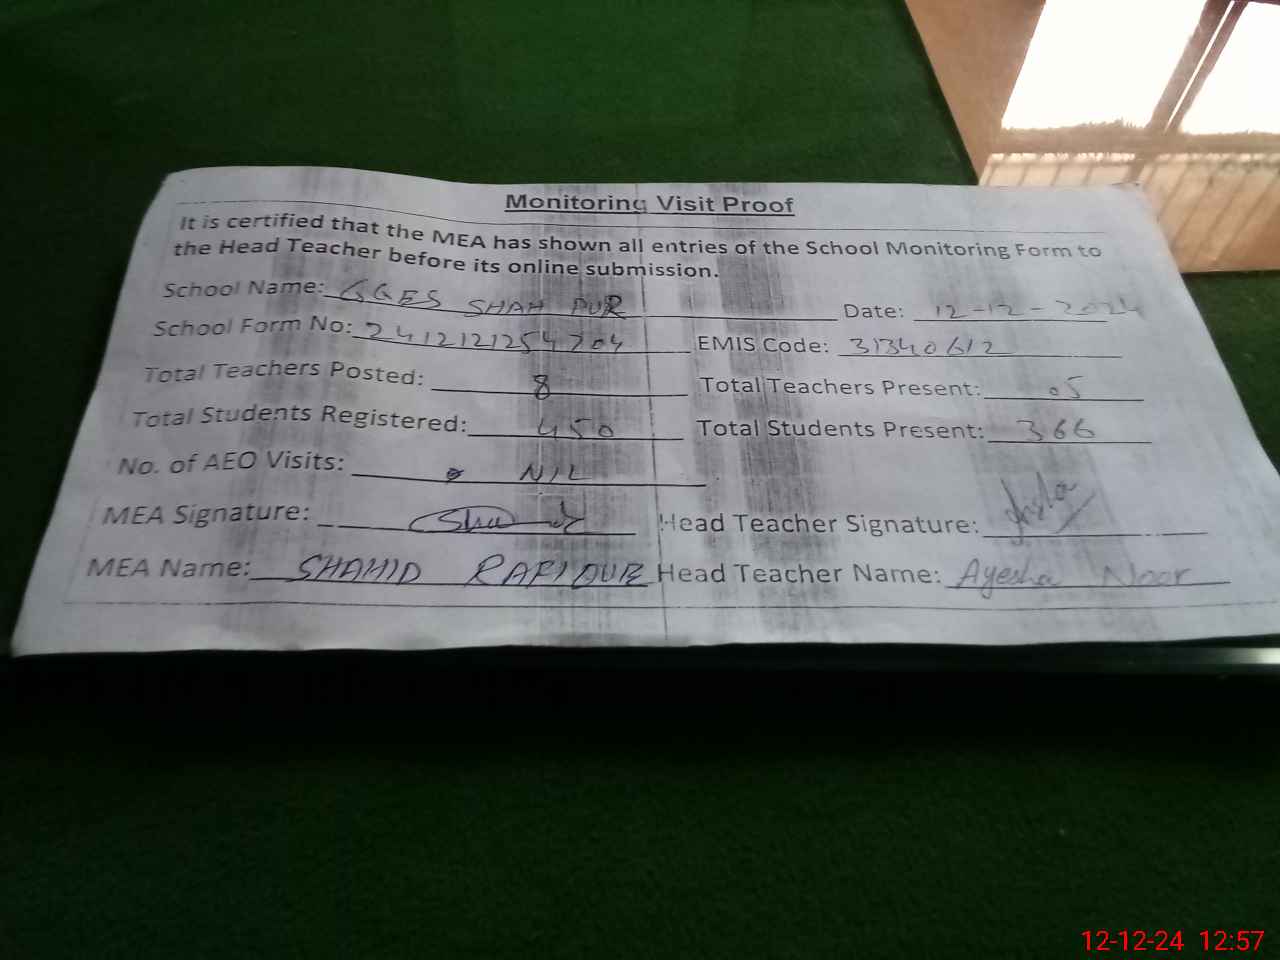 Monitoring Visit Proof
It is certified that the MEA has shown all entries of the School Monitoring Form to
the Head Teacher before its online submission.
School Name: GGES SHAH PUR Date: 12-12-2024
School Form No: 2412121254204 EMIS Code: 31340612
Total Teachers Posted: 8 Total Teachers Present: 05
Total Students Registered: 450 Total Students Present: 366
No. of AEO Visits: NIL
MEA Signature: Head Teacher Signature:
MEA Name: SHAHID Head Teacher Name: Ayesha Noor
12-12-24 12:57